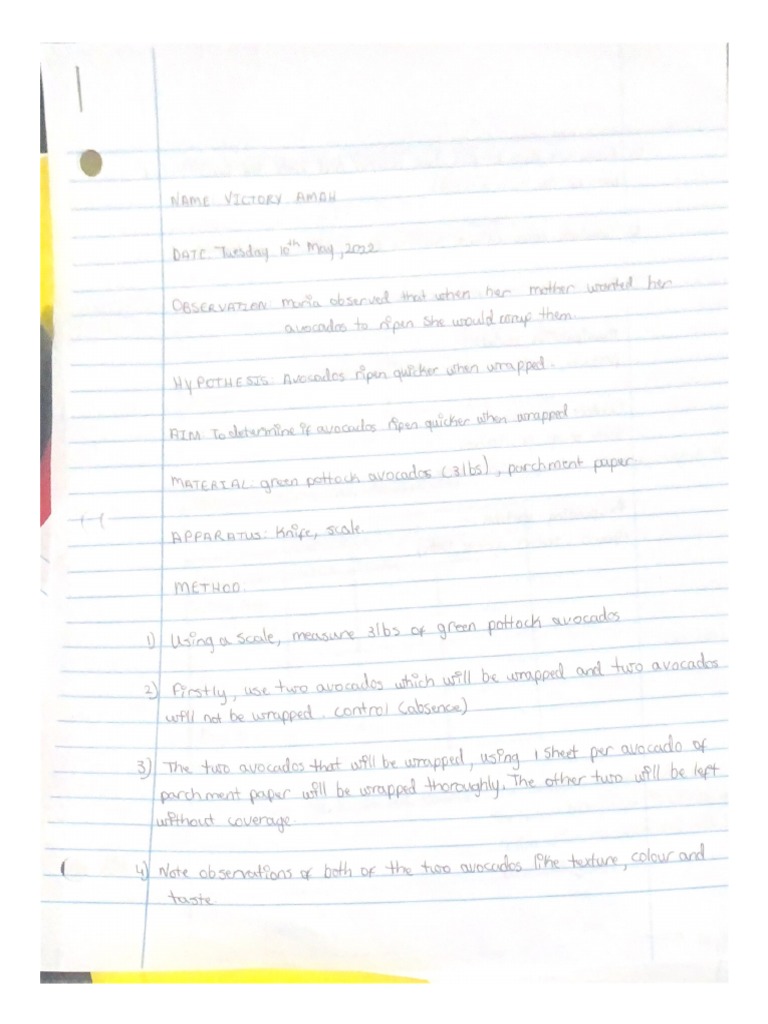 NAME: VICTORY AMAH
DATE: Tuesday 10th May, 2022
OBSERVATION: Maria observed that when her mother wanted her
avocados to ripen she would them.
HYPOTHESIS: Avocados ripen quicker when wrapped.
AIM: To determine if avocados ripen quicker when wrapped
MATERIAL: green pollock avocados (3lbs), parchment paper.
APPARATUS: Knife, scale.
METHOD.
1) Using a scale, measure 3lbs of green pollock avocados
2) Firstly, use two avocados which will be wrapped and two avocados
will not be wrapped. control (absence)
3) The two avocados that will be wrapped, using 1 sheet per avocado of
parchment paper will be wrapped thoroughly. The other two will be left
without coverage.
4) Note observations of both of the two avocados like texture, colour and
taste